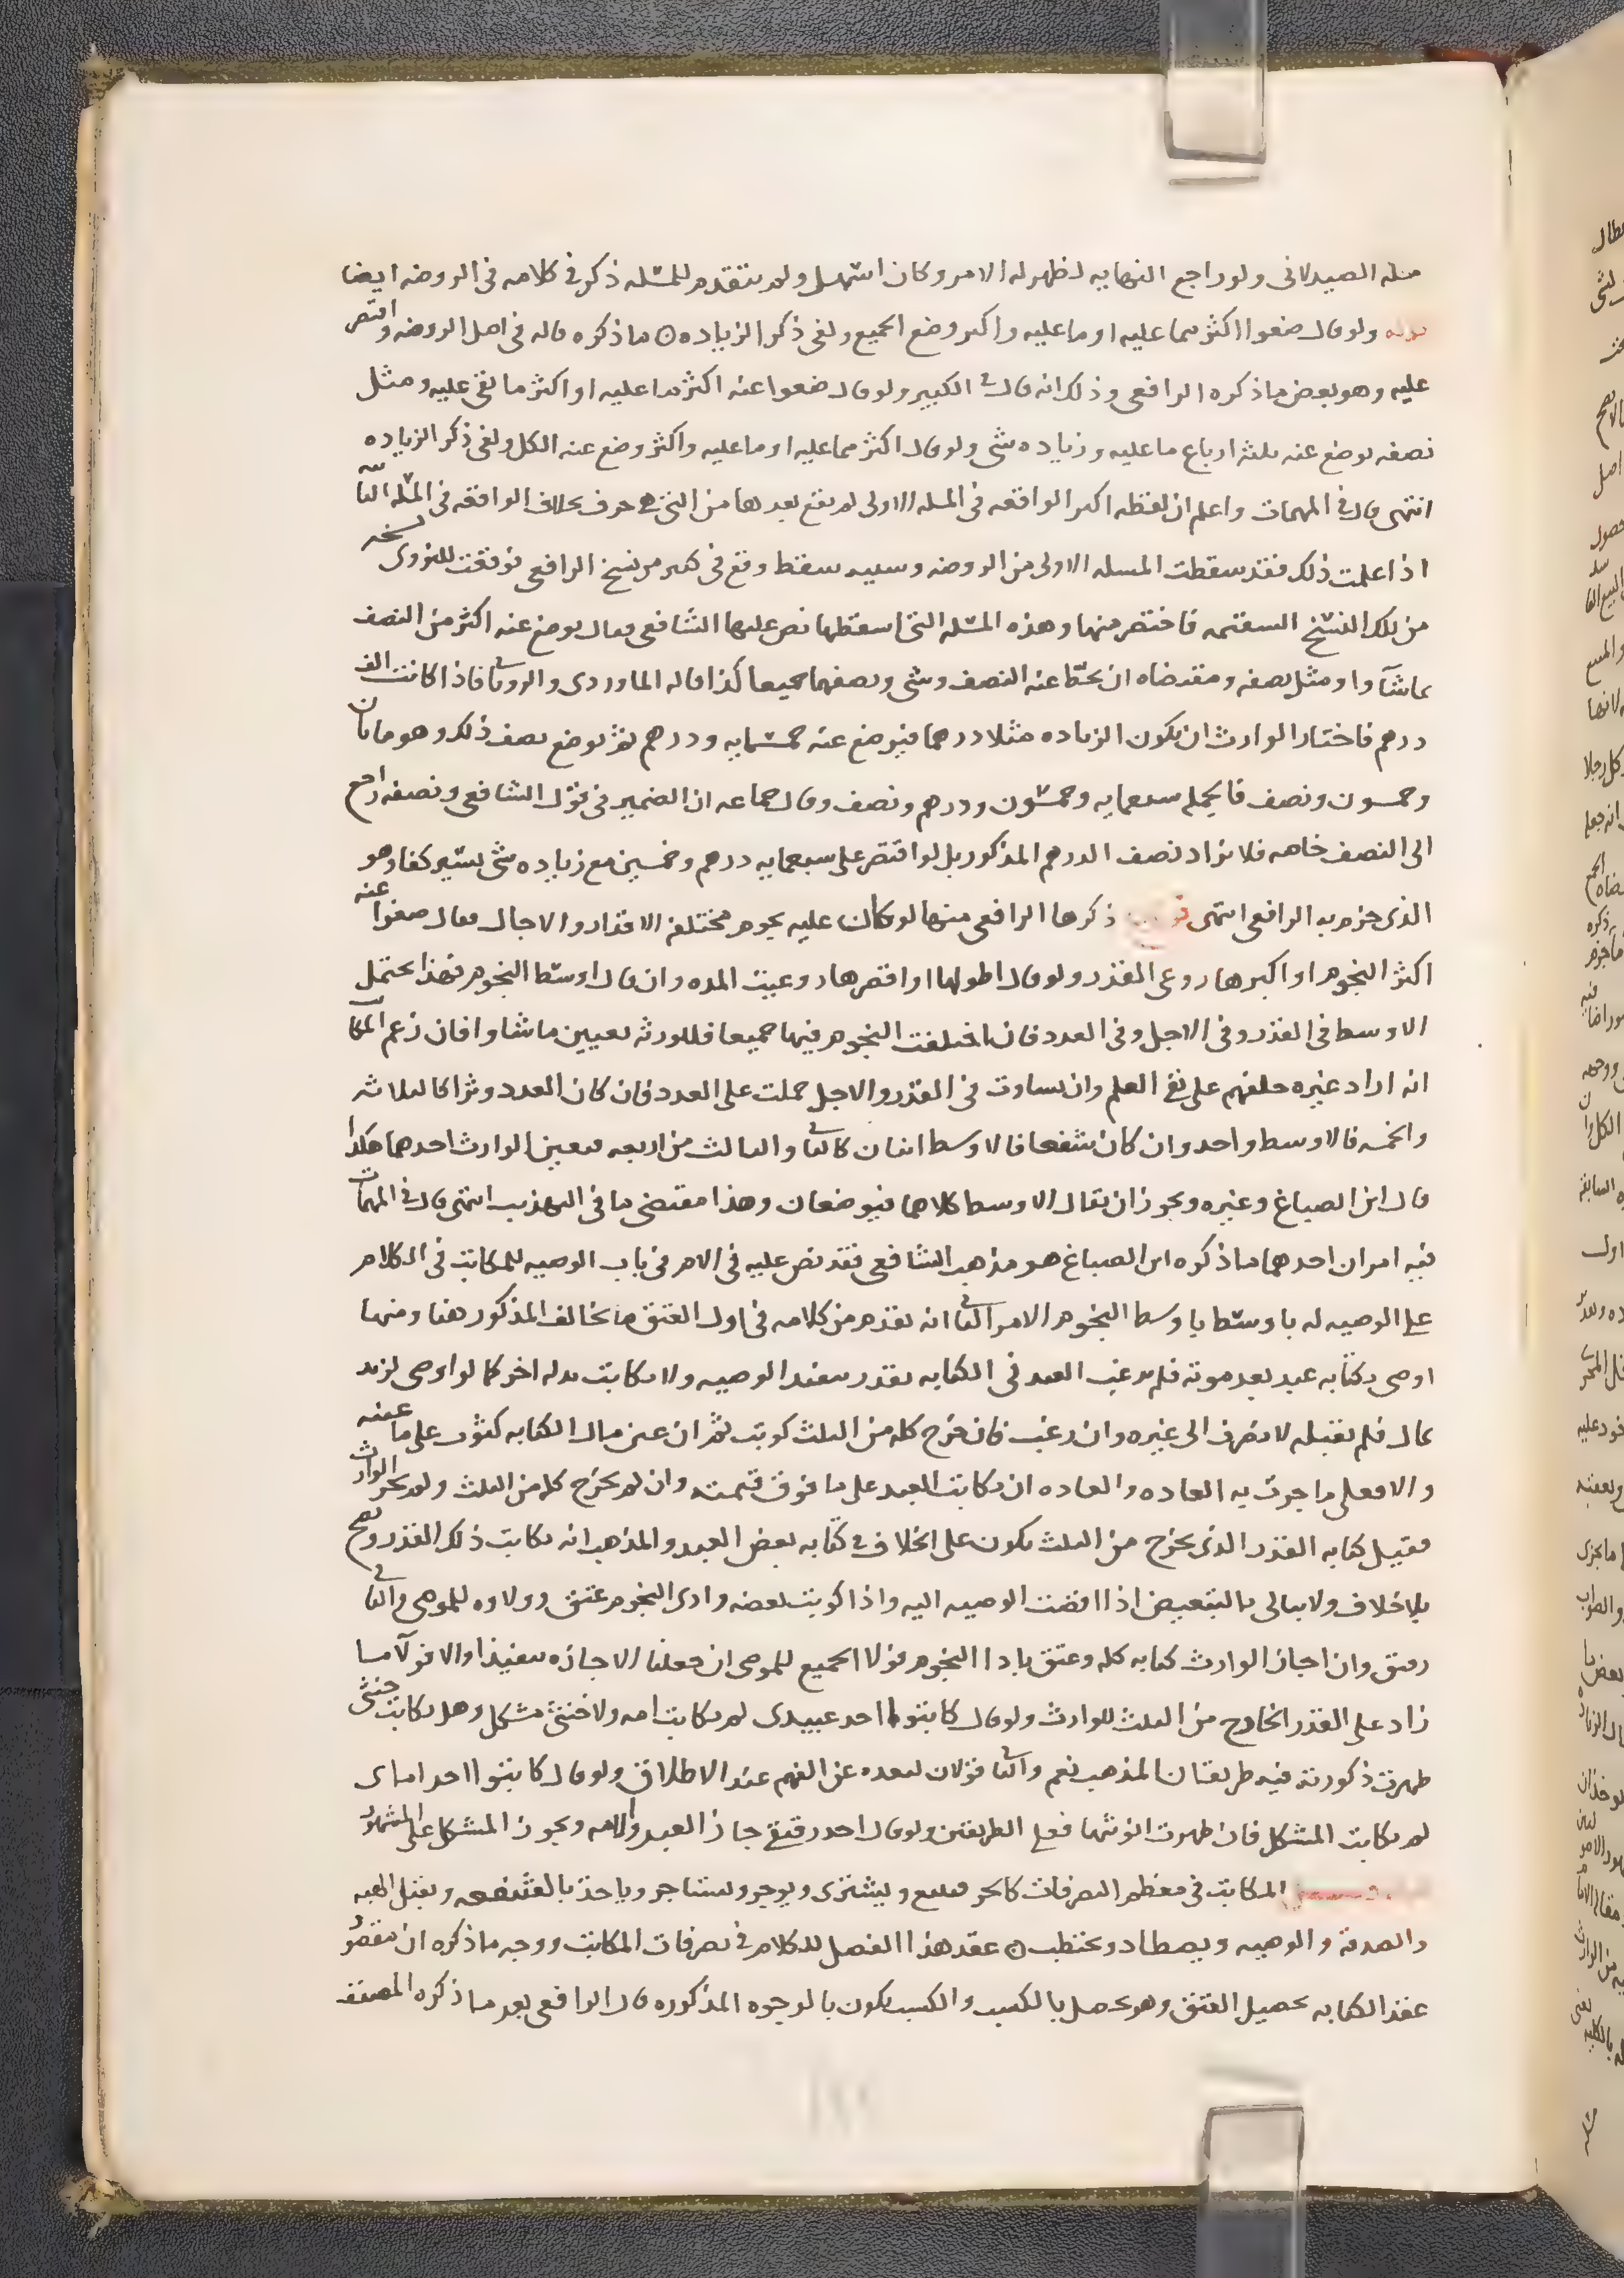 مثله الصيدلانى ولو راجع النهايه لظهر له الامر وكان اسهل ولم يتقدم للمسله ذكر فى كلامه فى الروضه ايضا
قوله ولو قال ضعوا اكثر مما عليه او ما عليه واكثر وضع الجميع ولغى ذكر الزياده ما ذكره قاله فى اصل الروضه واقتصر
عليه وهو بعض ما ذكره الرافعى وذلك انه قال فى الكبير ولو قال ضعوا عنه اكثر مما عليه او اكثر ما بقى عليه ومثل
نصفه يوضع عنه ثلثه ارباع ما عليه وزياده شى ولو قال اكثر مما عليه او ما عليه واكثر وضع عنه الكل ولغى ذكر الزياده
انتهى قال فى المهمات واعلم ان لفظه اكثر الواقعه فى المسله الاولى لم يقع بعدها من التى هى حرف بخلاف الواقعه فى المسله الثانيه
اذا علمت ذلك فقد سقطت المسله الاولى من الروضه وسببه سقط وقع فى كثير من نسخ الرافعى فوقعت للنووى نسخه
من تلك النسخ السقيمه فاختصر منها وهذه المسله التى اسقطها نص عليها الشافعى فقال يوضع عنه اكثر من النصف
بما شآوا ومثل نصفه ومقتضاه ان يحط عنه النصف وشى ونصفهما جميعا كذا قاله الماوردى والرويانى فاذا كانت الف
درهم فاختار الوارث ان يكون الزياده مثلا درهما فيوضع عنه خمسمايه ودرهم ثم يوضع نصف ذلك وهو مايتان
وخمسون ونصف فالجمله سبعمايه وخمسون ودرهم ونصف وقال جماعه ان الضمير فى قول الشافعى ونصفه راجع
الى النصف خاصه فلا يزاد نصف الدرهم المذكور بل لو اقتصر على سبعمايه درهم وخمسين مع زياده شى يسير كفا وهو
الذى جزم به الرافعى انتهى ذكرها الرافعى منها لو كان عليه نجوم مختلفه الاقدار والاجال فقال ضعوا عنه
اكثر النجوم او اكبرها روعى القدر ولو قال اطولها او اقصرها روعيت المده وان قال اوسط النجوم فهذا يحتمل
الاوسط فى القدر وفى الاجل وفى العدد فان اختلفت النجوم فيها جميعا فللورثه تعيين ما شاوا فان زعم المكاتب
انه اراد غيره حلفهم على نفى العلم وان تساوت فى القدر والاجل حملت على العدد فان كان العدد وترا كالثلاثه
والخمسه فالاوسط واحد وان كان شفعا فالاوسط اثنان كالثانى والثالث من اربعه فيعين الوارث احدهما هكذا
قال ابن الصباغ وغيره ويجوز ان يقال الاوسط كلاهما فيوضعان وهذا مقتضى ما فى التهذيب انتهى قال فى المهمات
فيه امران احدهما ما ذكره ابن الصباغ هو مذهب الشافعى فقد نص عليه فى الام فى باب الوصيه للمكاتب فى الكلام
على الوصيه له باوسط باوسط النجوم الامر الثانى انه تقدم من كلامه فى اول العتق ما يخالف المذكور هنا ومنها
اوصى بكتابه عبد بعد موته فلم يرغب العبد فى الكتابه تعذر تنفيذ الوصيه ولا يكاتب بدله اخر كما لو اوصى لزيد
بمال فلم يقبله لا يصرف الى غيره وان رغب فان خرج كله من الثلث كوتب ثم ان عين مال الكتابه كوتب على ما عينه
والا فعلى ما جرت به العاده والعاده ان يكاتب العبد على ما فوق قيمته وان لم يخرج كله من الثلث ولم يجز الوارث
فقيل كتابه القدر الذى يخرج من الثلث يكون على الخلاف فى كتابه بعض العبد والمذهب انه يكاتب ذلك القدر ويصح
بلا خلاف ولا يبالى بالتبعيض اذا افضت الوصيه اليه واذا كوتب بعضه وادى النجوم عتق وولاوه للموصى والباقى
رقيق وان اجاز الوارث كتابه كله وعتق بادا النجوم فولا الجميع للموصى ان جعلنا الاجازه تنفيذا والا فولآ ما
زاد على القدر الخارج من الثلث للوارث ولو قال كاتبوا احد عبيدى لم يكاتب امه ولا خنثى مشكل وهل يكاتب خنثى
ظهرت ذكورته فيه طريقان المذهب نعم والثانى قولان لبعده عن الفهم عند الاطلاق ولو قال كاتبوا احد امائى
لم يكاتب المشكل فان ظهرت انوثتها فعلى الطريقين ولو قال احد رقيقى جاز العبد والامه ويجوز المشكل على المشهور
المكاتب فى معظم التصرفات كالحر فيبيع ويشترى ويوجر ويستاجر وياخذ بالشفعه ويقبل الهبه
والصدقه والوصيه ويصطاد ويحتطب عقد هذا الفصل للكلام فى تصرفات المكاتب ووجه ما ذكره ان مقصود
عقد الكتابه تحصيل العتق وهو يحصل بالكسب والكسب يكون بالوجوه المذكوره قال الرافعى بعد ما ذكره المصنف